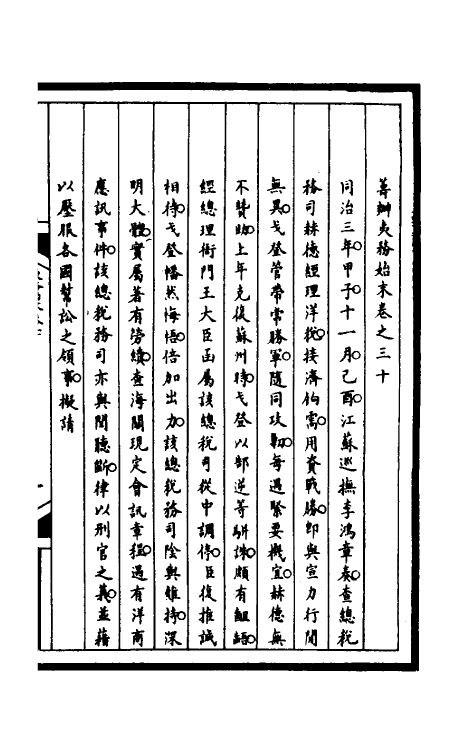 籌辦夷務始末卷之三十
同治三年甲子十一月己酉江蘇巡撫李鴻章奏查總稅
務司赫德經理洋稅接濟餉需用資戰勝卽與宣力行間
無異戈登管帶常勝軍隨同攻勦每遇緊要機宜赫德無
不贊助上年克復蘇州時戈登以郜逆等駢誅頗有齟齬
經總理衙門王大臣函屬該總稅司從中調停臣復推誠
相待戈登幡然悔悟倍加出力該總稅務司陰與維持深
明大體實屬著有勞績查海關現定會訊章程遇有洋商
應訊事件該總稅務司亦與聞聽斷律以刑官之義並藉
以壓服各國幫訟之領事擬請